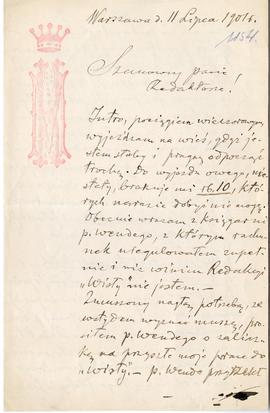 Warszawa d. 11 Lipca 1901 r.
1154.
Szanowny panie
Redaktorze!
Jutro, pociągiem wieczorowym,
wyjeżdżam na wieś, gdyż je-
stem słaby i pragnę odpocząć
trochę. Do wyjazdu owego, nie-
stety, brakuje mi 16.10, któ-
rych narazie dobyć nie mogę.
Obecnie wracam z księgarni
p. Wendego, z którym rachu-
nek uregulowałem zupeł-
nie i nic winien Redakcyi
„Wisły" nie jestem. —
Zmuszony nagłą potrzebą, ze
wstydem wyznać muszę, pro-
siłem p. Wendego o zalicz-
kę na przyszłe moje prace do
„Wisły". — p. Wende przyrzekł